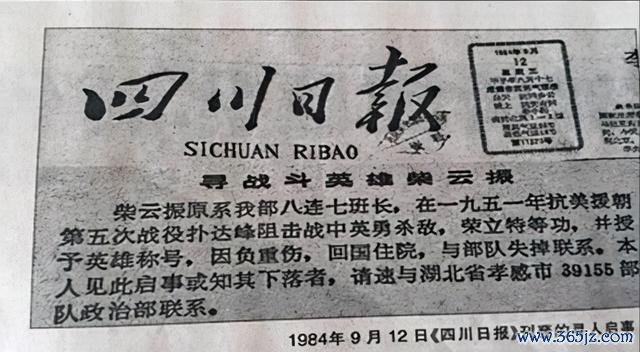 四川日報
SICHUAN RIBAO
1984年9月
12
星期三
寻战斗英雄柴云振
柴云振原系我部八连七班长，在一九五一年抗美援朝
第五次战役扑达峰阻击战中英勇杀敌，荣立特等功，并授
予英雄称号，因负重伤，回国住院，与部队失掉联系。本
人见此启事或知其下落者，请速与湖北省孝感市39155部
队政治部联系。
1984年9月12日《四川日报》刊登的寻人启事
www.365jz.com